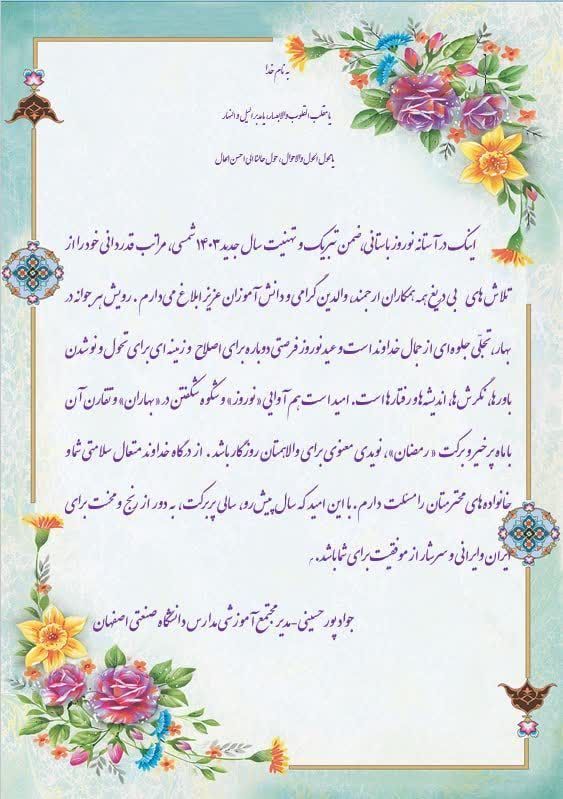 به نام خدا
یا مقلب القلوب والابصار، یا مدبر اللیل و النهار
یا محول الحول والاحوال، حول حالنا الی احسن الحال
اینک در آستانه نوروز باستانی، ضمن تبریک و تهنیت سال جدید ۱۴۰۳ شمسی، مراتب قدردانی خود را از
تلاش های بی دریغ همه همکاران ارجمند، والدین گرامی و دانش آموزان عزیز ابلاغ می دارم . رویش هر جوانه در
بهار، تجلّی جلوه ای از جمال خداوند است و عید نوروز فرصتی دوباره برای اصلاح و زمینه ای برای تحول و نوشدن
باورها، نگرش ها، اندیشه ها و رفتارهاست. امید است هم آوایی «نوروز» و شکوه شکفتن در «بهاران» و تقارن آن
با ماه پر خیر و برکت «رمضان»، نویدی معنوی برای والاهمتان روزگار باشد . از درگاه خداوند متعال سلامتی شما و
خانواده های محترمتان را مسئلت دارم . با این امید که سال پیش رو، سالی پربرکت، به دور از رنج و محنت برای
ایران و ایرانی و سرشار از موفقیت برای شما باشد .
جواد پور حسینی-مدیر مجتمع آموزشی مدارس دانشگاه صنعتی اصفهان